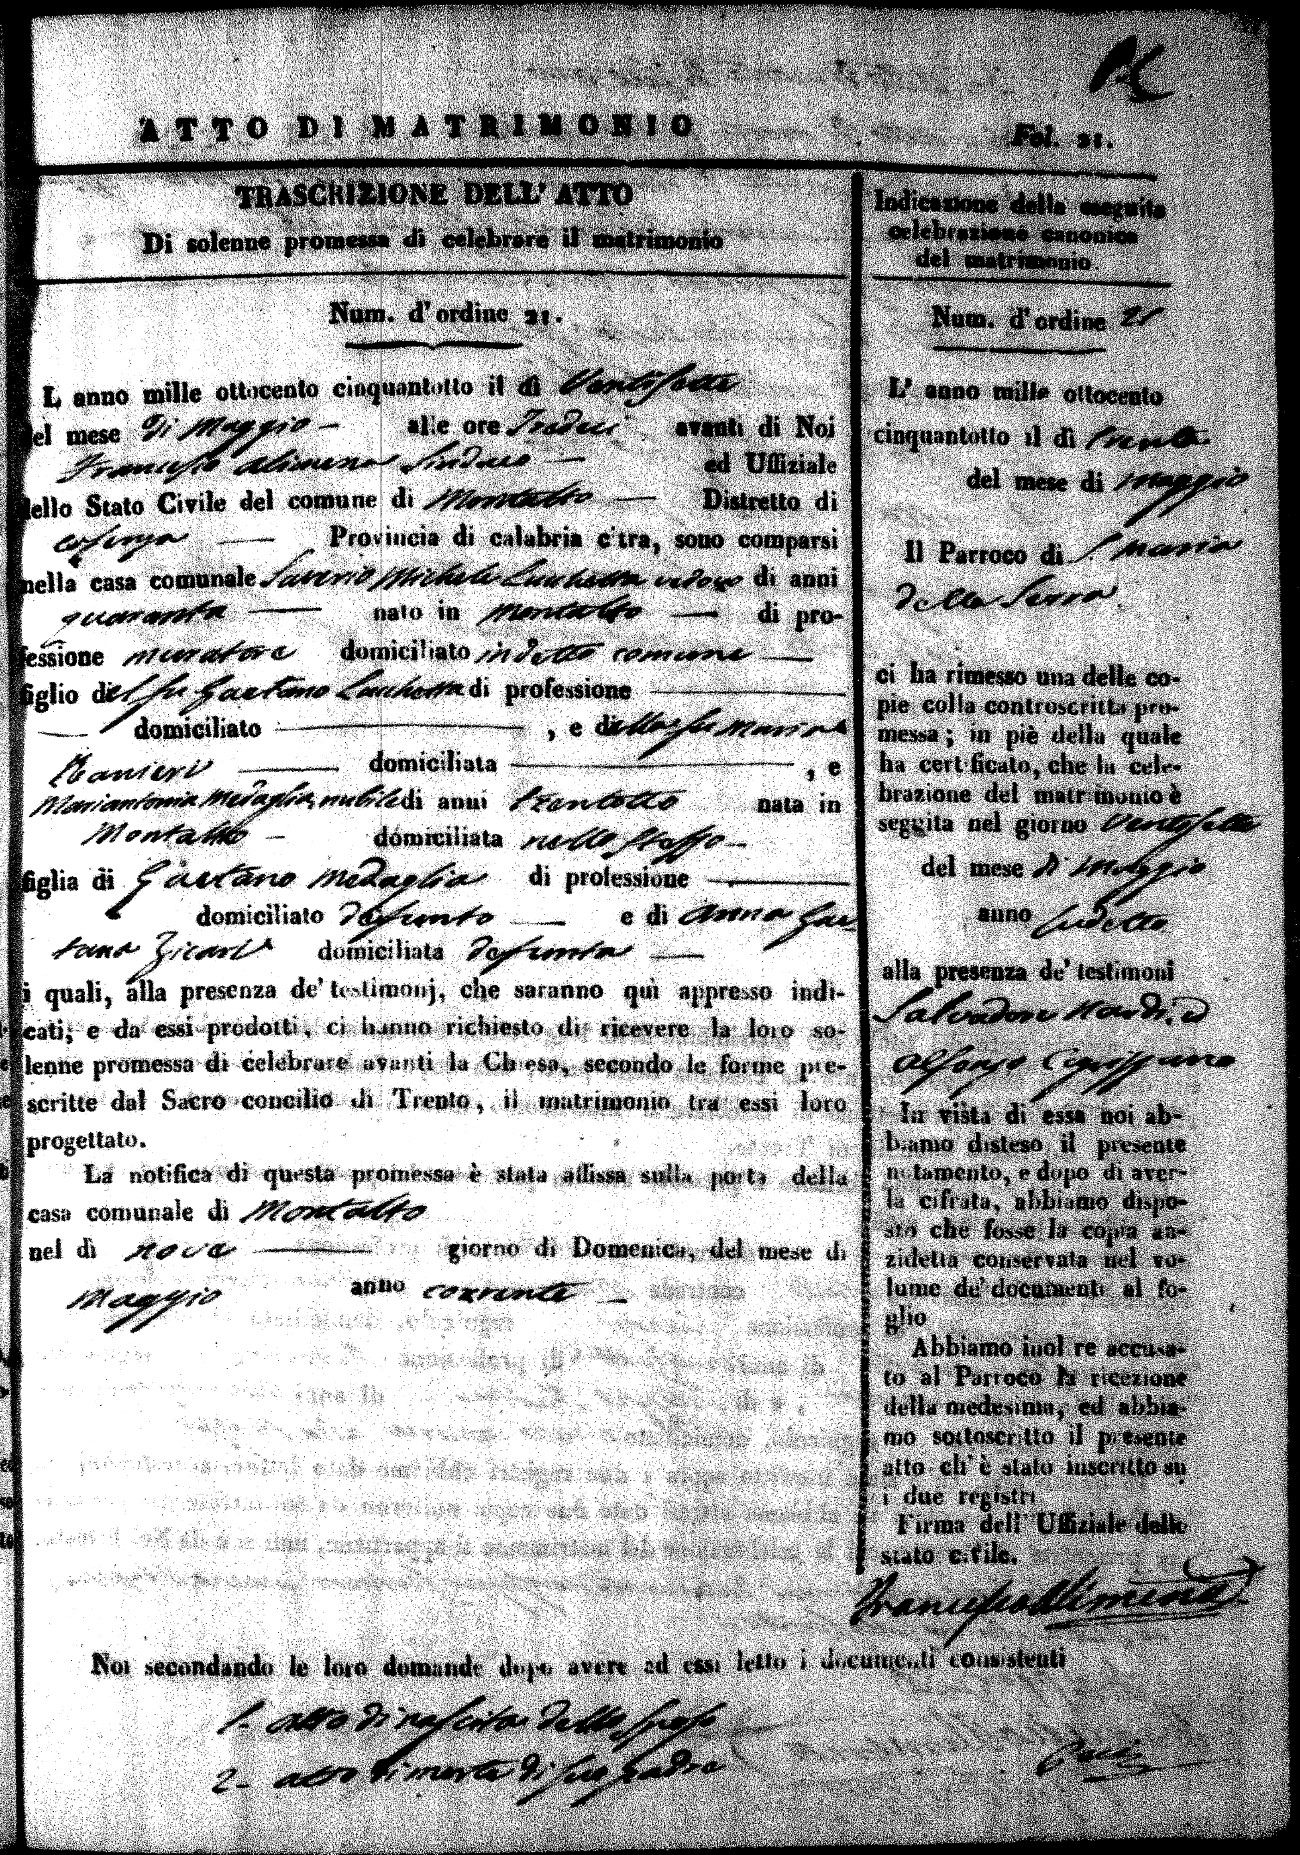 ATTO DI MATRIMONIO
Fol. 21.
TRASCRIZIONE DELL' ATTO
Di solenne promessa di celebrare il matrimonio
Num. d'ordine 21.
L anno mille ottocento cinquantotto il dì Ventisette
del mese di Maggio – alle ore Tredeci avanti di Noi
Francesco Alimena Sindaco – ed Uffiziale
dello Stato Civile del comune di Montalto – Distretto di
Cosenza – Provincia di calabria citra, sono comparsi
nella casa comunale Saverio Michele Lucchetta vedovo di anni
quaranta – nato in Montalto – di pro-
fessione muratore domiciliato in detto comune –
figlio del fu Gaetano Lucchetta di professione –
– domiciliato – , e della fu Maria
Ranieri – domiciliata – , e
Mariantonia Medaglia, nubile di anni trentotto nata in
Montalto – domiciliata nello stesso –
figlia di Gaetano Medaglia di professione –
domiciliato defunto – e di Anna Gae-
tana Zicari domiciliata defunta –
i quali, alla presenza de' testimonj, che saranno quì appresso indi-
cati, e da essi prodotti, ci hanno richiesto di ricevere la loro so-
lenne promessa di celebrare avanti la Chiesa, secondo le forme pre-
scritte dal Sacro concilio di Trento, il matrimonio tra essi loro
progettato.
La notifica di questa promessa è stata affissa sulla porta della
casa comunale di Montalto
nel dì nove – giorno di Domenica, del mese di
Maggio anno corrente –
Indicazione della seguita
celebrazione canonica
del matrimonio.
Num. d'ordine 21
L' anno mille ottocento
cinquantotto il dì trenta
del mese di maggio
Il Parroco di S. Maria
della Serra
ci ha rimesso una delle co-
pie colla controscritta pro-
messa; in piè della quale
ha certificato, che la cele-
brazione del matrimonio è
seguita nel giorno Ventisette
del mese di Maggio
anno sudetto
alla presenza de' testimoni
Salvadore Nardi, e
Alfonso
In vista di essa noi ab-
biamo disteso il presente
notamento, e dopo di aver-
la cifrata, abbiamo dispo-
sto che fosse la copia an-
zidetta conservata nel vo-
lume de' documenti al fo-
glio
Abbiamo inoltre accusa-
to al Parroco la ricezione
della medesima, ed abbia-
mo sottoscritto il presente
atto ch' è stato inscritto su
i due registri
Firma dell' Uffiziale dello
stato civile.
Francesco Alimena
Noi secondando le loro domande dopo avere ad essi letto i documenti consistenti
1.- atto di nascita dello sposo
2- atto di morte di suo padre